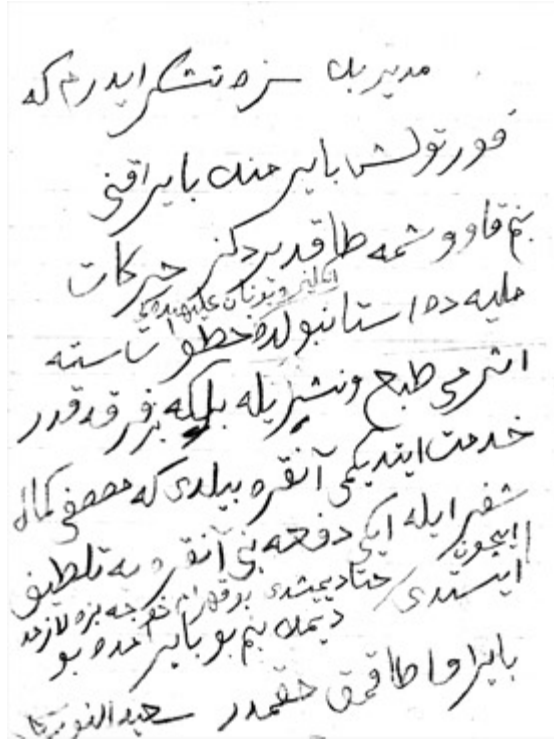 مدیر بك سزه تشكر ایدرم كه
قورتولش بایرامنده بایراقنی
بنم قاووشمه طاقدیردكز حركات
ملیه ده استانبولده انكلیز و یونان علیهنده كی خطوات سته
اثرمی طبع و نشریله بلكه بر فرقه قدر
خدمت ایتدیكمی آنقره بیلدی كه مصطفی كمال
شفر ایله ایكی دفعه بنی آنقره یه تلطیف ایچون
ایستدی حتا دیمشدی بو قهرمان خوجه بزه لازمدر
دیمك بنم بو بایرامده بو
بایراق طاقمق حقمدر سعید النورسی